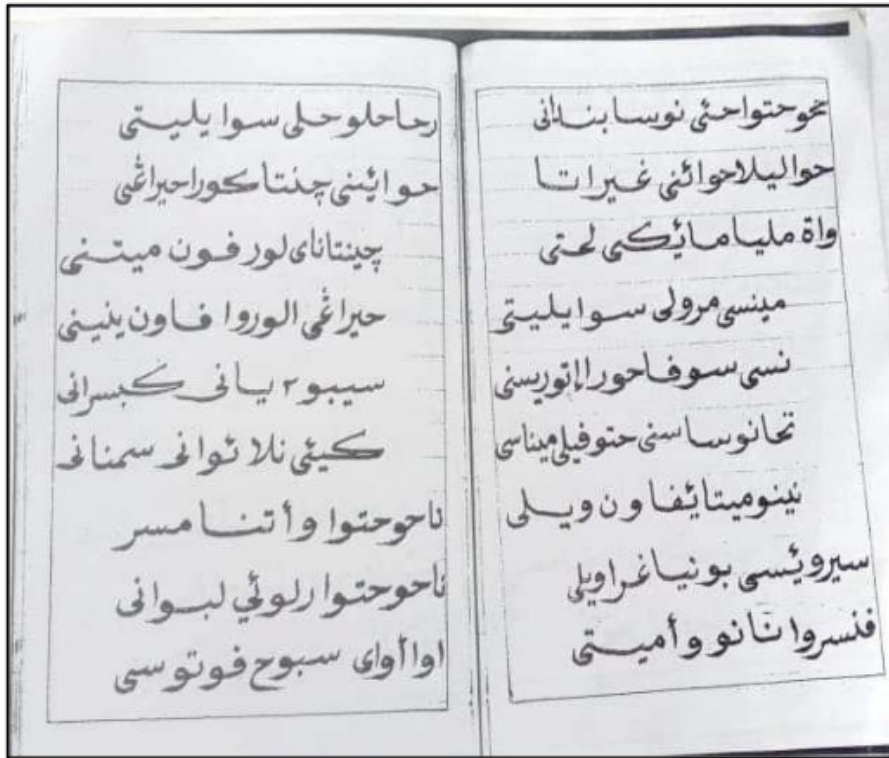 نحوحتواحئي نوسابنداني
حواليلاحوائني غيراتا
واة مليامائيكي لحتي
مينسي مرولي سوايليتي
نسي سوفاحورااتوريسني
تحانوساسني حتوفيلي ميناسي
نينوميتائيفاون ويلي
سيرويئسي بونياغراويلي
فنسروا نانو وأميتي
رحاحلوحلي سوايليتي
حوائيني چنتاكوراحيراڠي
چينتاناي لورفون ميتني
حيراڠي الوروا فاون ينيني
سيبو٢ ياني كبسراني
كيئي نلائواني سمناني
ناحوحتوا وأتنا مسر
ناحوحتوا رلوئي لبواني
اواأواي سبوح فوتوسي